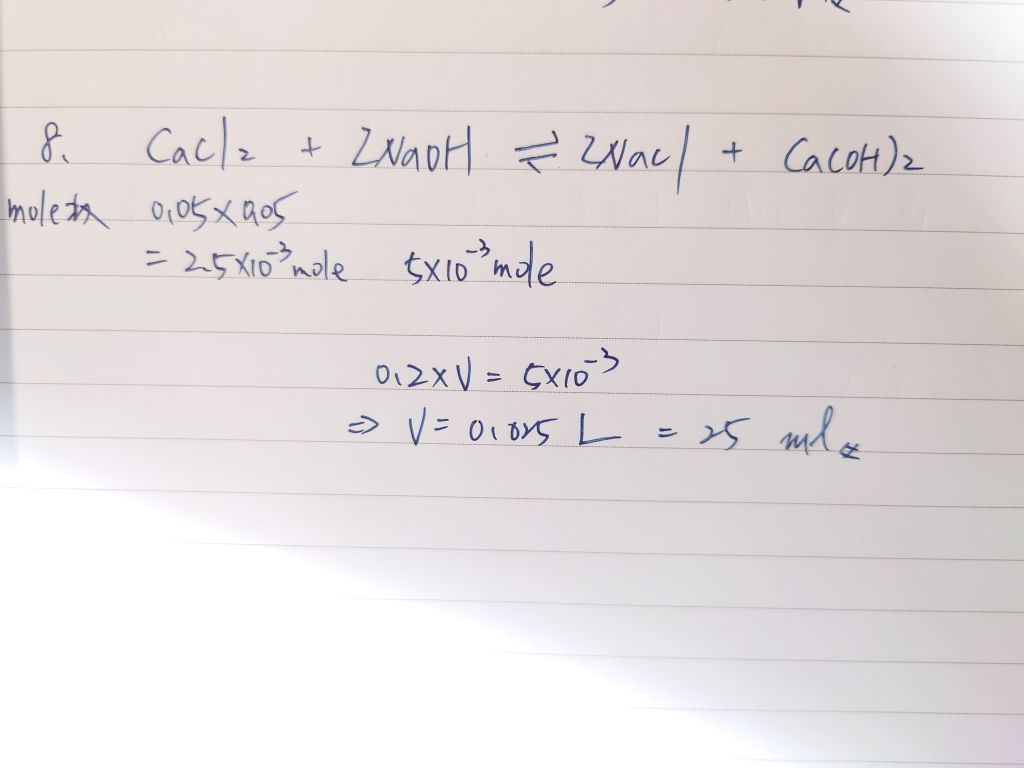 8. CaCl2 + 2NaOH ⇌ 2NaCl + Ca(OH)2
mole 0.05×0.05
= 2.5×10⁻³ mole 5×10⁻³ mole
0.2×V = 5×10⁻³
⇒ V = 0.025 L = 25 ml